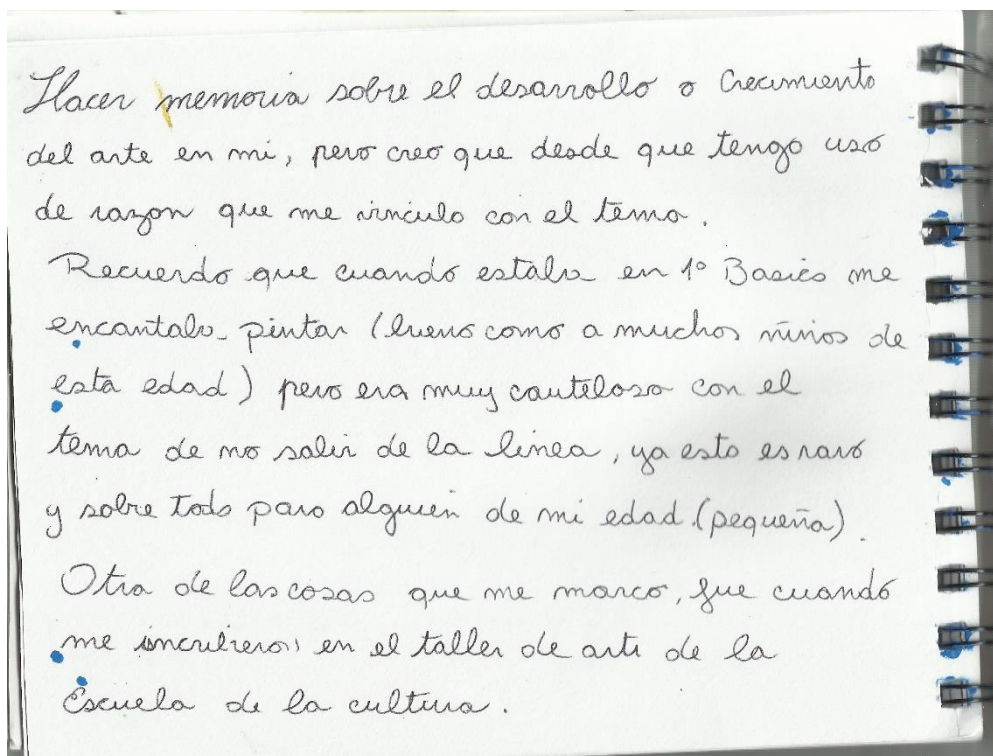 Hacer memoria sobre el desarrollo o Crecimiento
del arte en mi, pero creo que desde que tengo uso
de razon que me vinculo con el tema.
Recuerdo que cuando estaba en 1º Basico me
encantaba pintar (bueno como a muchos niños de
esta edad) pero era muy cautelosa con el
tema de no salir de la linea, ya esto es raro
y sobre todo para alguien de mi edad (pequeña).
Otra de las cosas que me marco, fue cuando
me incribieron en el taller de arte de la
Escuela de la cultura.